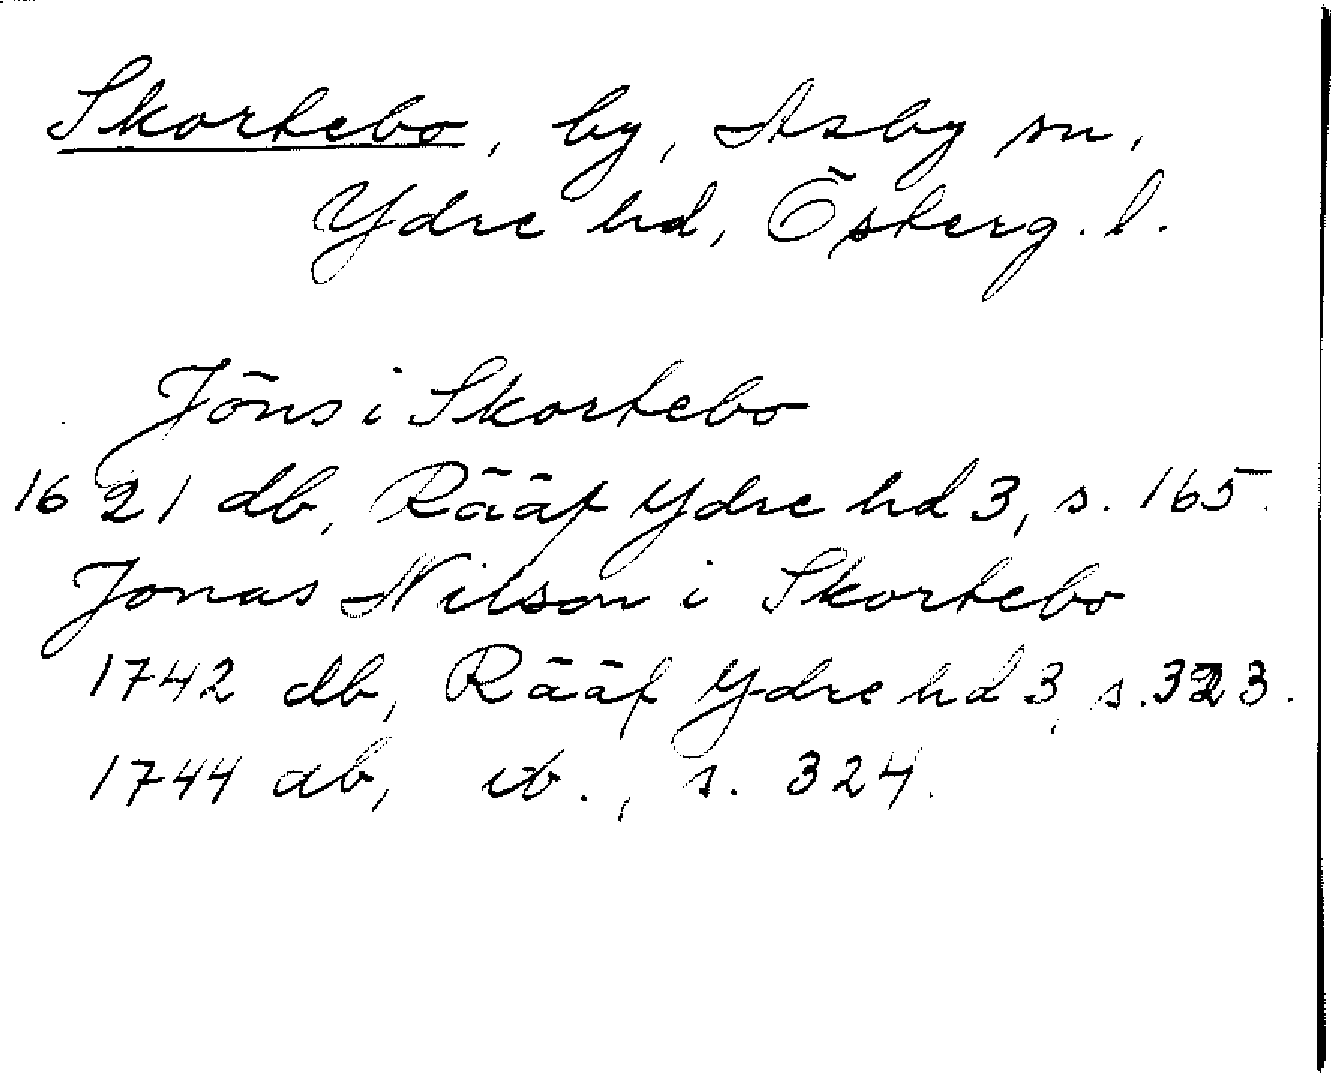 Skortebo, by, Asby sn,
Ydre hd, Österg. l.
Jöns i Skortebo
1621 db, Rääf Ydre hd 3, s. 165.
Jonas Nilson i Skortebo
1742 db, Rääf Ydre hd 3, s. 323.
1744 db, ib., s. 324.